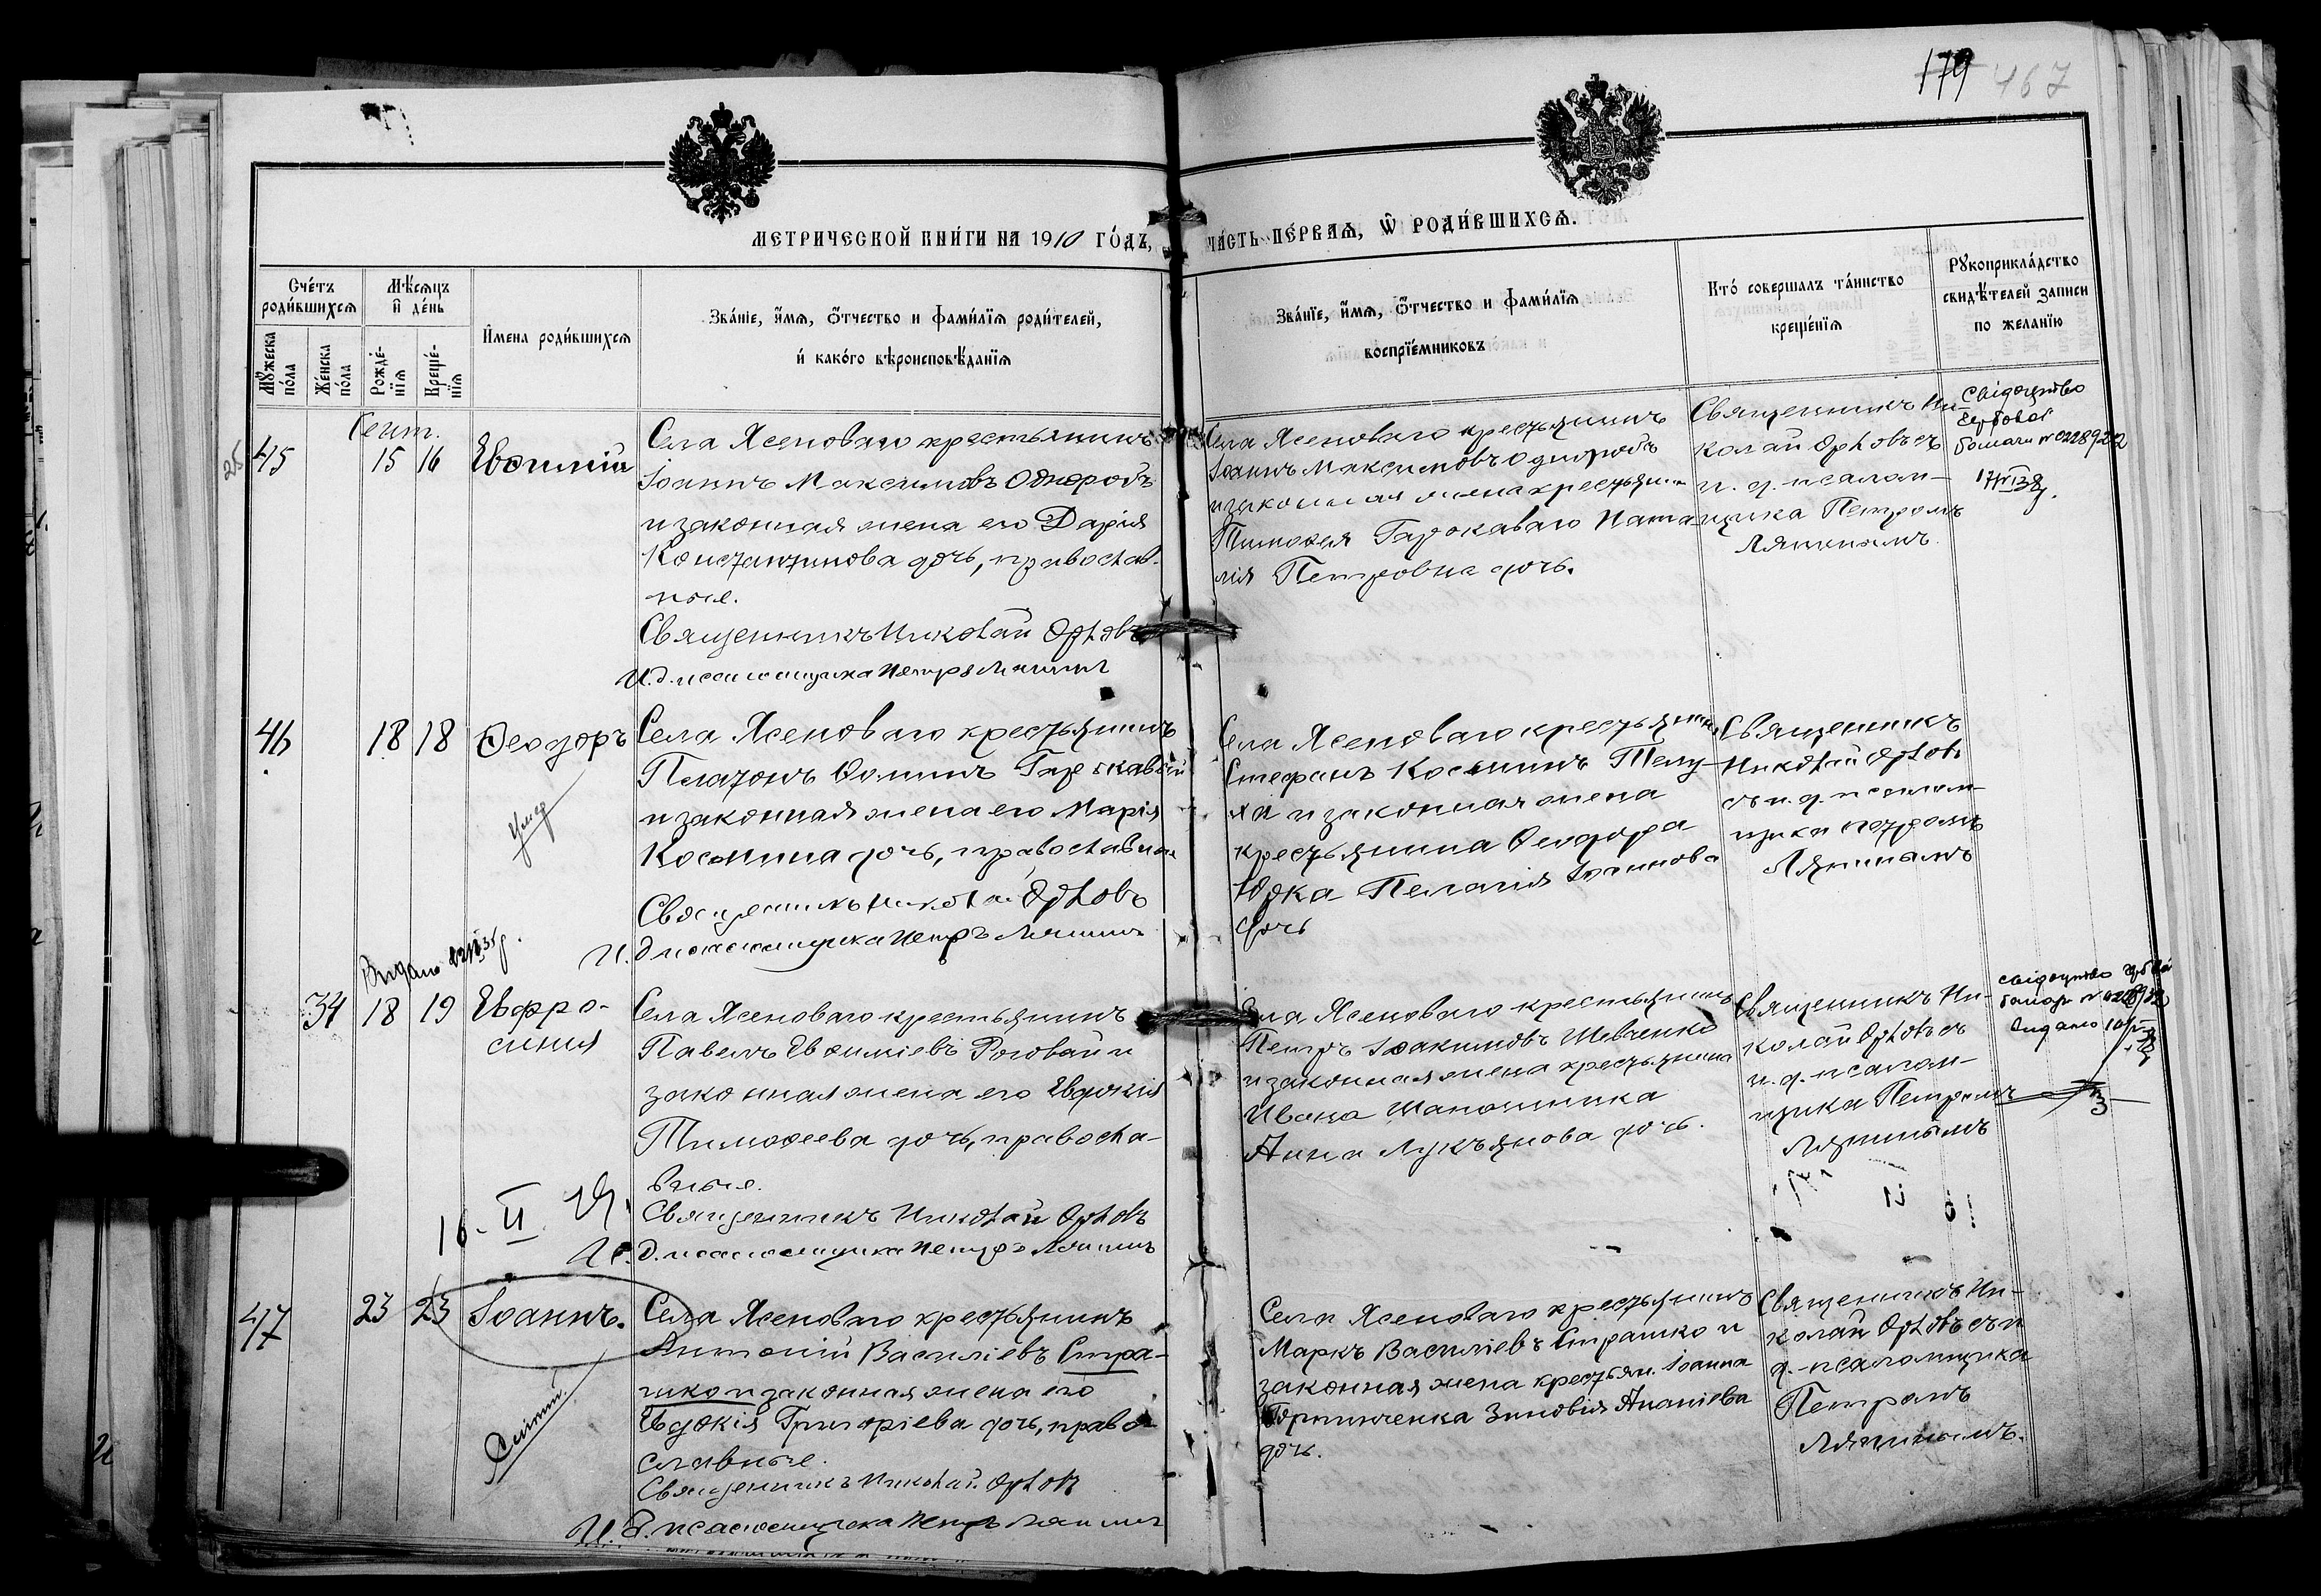 179 467
МЕТРИЧЕСКОЙ КНИ́ГИ НА 1910 ГО́ДЪ,
ЧА́СТЬ ПЕ́РВАѦ, Ѽ РОДИ́ВШИХСѦ.
Сче́тъ роди́вшихсѧ
Мꙋжеска по́ла
Же́нска по́ла
Мѣ́сѧцъ и҆ де́нь
Рожде́нїѧ
Креще́нїѧ
И҆мена роди́вшихсѧ
Зва́нїе, и҆́мѧ, ѻ҆́тчество и фами́лїѧ роди́телей,
и҆ како́го вѣроисповѣ́данїѧ
Зва́нїе, и҆́мѧ, ѻ҆́тчество и фами́лїѧ
воспрїе́мниковъ
Кто́ совершалъ та́инство
креще́нїѧ
Рꙋкоприкла́дство
свидѣ́телей записи
по желанїю
Сент.
25
45
15 16
Евѳимій
Села Ясеноваго крестьянинъ
Іоаннъ Максимовъ Однорогъ
и законная жена его Дарія
Константинова дочь, православ-
ные.
Священникъ Николай Орловъ
И. д. псаломщика Петръ Ляпинъ
Села Ясеноваго крестьянинъ
Іоаннъ Максимовъ Однорогъ
и законная жена крестьянина
Тимоѳея Гардкаваго Ната-
лія Петровна дочь.
Священникъ Ни-
колай Орловъ съ
и. д. псалом-
щика Петромъ
Ляпинымъ.
Свідоцтво
гербовой
бомаги № 0228922
46
18 18
Ѳеодоръ
умер
Села Ясеноваго крестьянинъ
Платонъ Ѳоминъ
и законная жена его Марія
Космина дочь, православные
Священникъ Николай Орловъ
И. д. псаломщика Петръ Ляпинъ
Села Ясеноваго крестьянинъ
Стефанъ Косминъ
и законная жена
крестьянина Ѳеодора
Юрка Пелагія Іоаннова
дочь
Священникъ
Николай Орловъ
съ и. д. псалом-
щика Петромъ
Ляпинымъ
Видано
34
18 19
Евфро-
синія
Села Ясеноваго крестьянинъ
Павелъ Евѳиміевъ Роговай и
законная жена его Евдокія
Тимоѳеева дочь, правосла-
вные.
Священникъ Николай Орловъ
И. д. псаломщика Петръ Ляпинъ
16 - II
Села Ясеноваго крестьянинъ
Петръ Іоакимовъ Шевченко
и законная жена крестьянина
Ивана Шапошника
Анна Лукьянова дочь.
Священникъ Ни-
колай Орловъ съ
и. д. псалом-
щика Петромъ
Ляпинымъ
свідоцтво
Видано
47
23 23
Іоаннъ.
Села Ясеноваго крестьянинъ
Антоній Василіевъ Стра-
шко и законная жена его
Евдокія Григоріева дочь, право-
славные.
Священникъ Николай Орловъ
И. д. псаломщика Петръ Ляпинъ
Села Ясеноваго крестьянинъ
Маркъ Василіевъ Страшко и
законная жена крестьян. Іоанна
Зиновія Ананіева
дочь.
Священникъ Ни-
колай Орловъ съ и
д. псаломщика
Петромъ
Ляпинымъ.